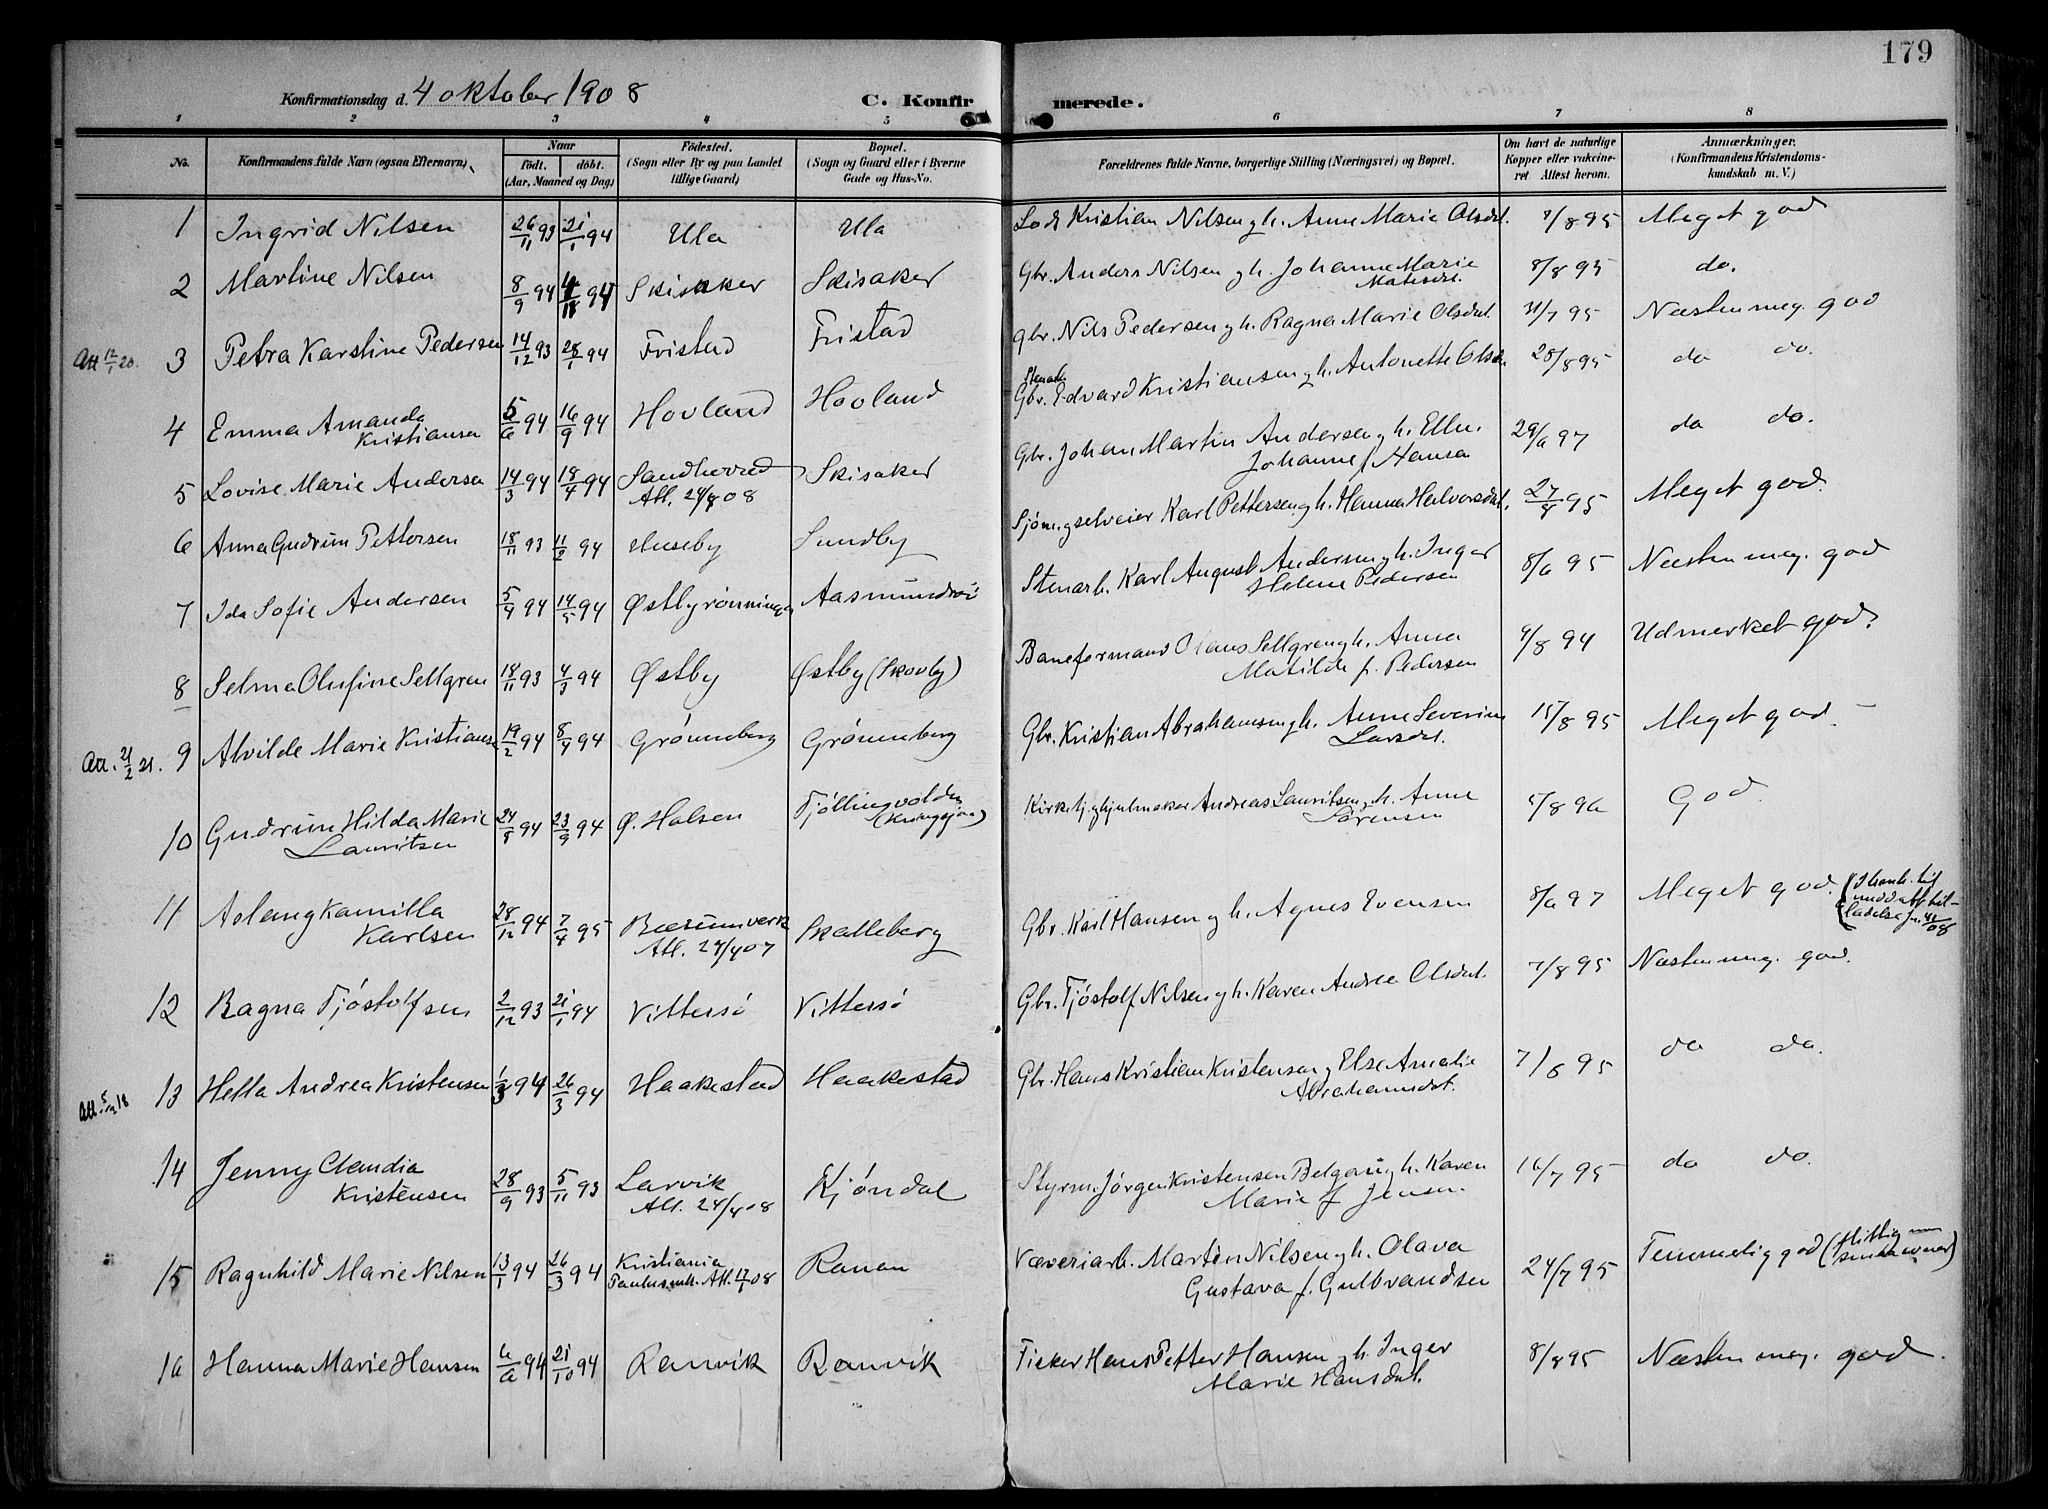 179
Konfirmationsdag d. 4 oktober 1908
C. Konfirmerede.
1 2 3 4 5 6 7 8
No.
Konfirmandens fulde Navn (ogsaa Efternavn).
Naar
födt. döbt.
(Aar, Maaned og Dag)
Födested.
(Sogn eller By og paa Landet
tillige Gaard)
Bopæl.
(Sogn og Gaard eller i Byerne
Gade og Hus-No.
Forældrenes fulde Navne, borgerlige Stilling (Næringsvei) og Bopæl.
Om havt de naturlige
Kopper eller vakcine-
ret Attest herom.
Anmærkninger.
(Konfirmandens Kristendoms-
kundskab m. V.)
1 Ingrid Nilsen 26/11 93 21/1 94 Ula Ula Lods Kristian Nilsen g h. Anne Marie Olsdat. 7/8 95 Meget god
2 Martine Nilsen 8/9 94 94 Skisaker Skisaker Gbr. Anders Nilsen g h. Johanne Marie 8/8 95 do.
Att 12/1 20. 3 Petra Karstine Pedersen 14/12 93 28/1 94 Fristad Fristad gbr. Nils Pedersen g h. Ragna Marie Olsdat. 31/7 95 Næsten meg. god
4 Emma Amanda
Kristiansen 5/6 94 16/9 94 Hovland Hovland Gbr. Edvard Kristiansen g h. Antonette Olsdat. 28/8 95 do do.
5 Lovise Marie Andersen 14/3 94 18/4 94 Sandherred
Att. 08 Skisaker Gbr. Johan Martin Andersen g h. Ellen
Johanne f. Hansen 29/6 97 do do.
6 Anna Gudrun Pettersen 18/11 93 11/2 94 Huseby Sundby Sjøm. g selveier Karl Pettersen g h. Hanna Halvorsdat. 27/8 95 Meget god.
7 Ida Sofie Andersen 5/4 94 14/5 94 Østbyrønningen Aasmundrøi Stenarb. Karl August Andersen g h. Inger
Helene Pedersen 8/6 95 Næsten meg. god
8 Selma Olufine Sellgren 18/11 93 4/3 94 Østby Østby (Skovby) Baneformand Olaus Sellgren g h. Anna
Matilde f. Pedersen 9/8 94 Udmerket god.
Att. 21/2 21. 9 Alvilde Marie Kristiansen 19/2 94 8/4 94 Grønneberg Grønneberg Gbr. Kristian Abrahamsen g h. Anne Severine
Larsdat. 15/8 95 Meget god.
10 Gudrun Hilda Marie
Lauritsen 24/8 94 23/9 94 Ø. Halsen Tjøllingvolden
Kirketj. g hjulmaker Andreas Lauritsen g h. Anne
Sørensen 5/8 96 God.
11 Aslaug Kamilla
Karlsen 28/12 94 7/4 95 Bærumverk
Att. 24/4 07 Skalleberg Gbr. Karl Hansen g h. Agnes Evensen 8/6 97 Meget god.
12 Ragna Tjøstolfsen 2/12 93 21/1 94 Vittersø Vittersø Gbr. Tjøstolf Nilsen g h. Karen Andrea Olsdat. 7/8 95 Næsten meg. god.
Att. 18 13 Hella Andrea Kristensen 1/3 94 26/3 94 Haakestad Haakestad Gbr. Hans Kristian Kristensen g Else Amalie
Abrahamsdat. 7/8 95 do do.
14 Jenny Claudia
Kristensen 28/9 93 5/11 93 Larvik
Att. 24/4 08 Kjøndal Styrm. Jørgen Kristensen Belgau g h. Karen
Marie f Jensen. 16/7 95 do do.
15 Ragnhild Marie Nilsen 13/1 94 26/3 94 Kristiania
Att. 08 Ranan Væveriarb. Martin Nilsen g h. Olava
Gustava f. Gulbrandsen 24/7 95 Temmelig god
16 Hanna Marie Hansen 6/6 94 21/10 94 Ranvik Ranvik Fisker Hans Petter Hansen g h. Inger
Marie Hansdat. 8/8 95 Næsten meg. god.